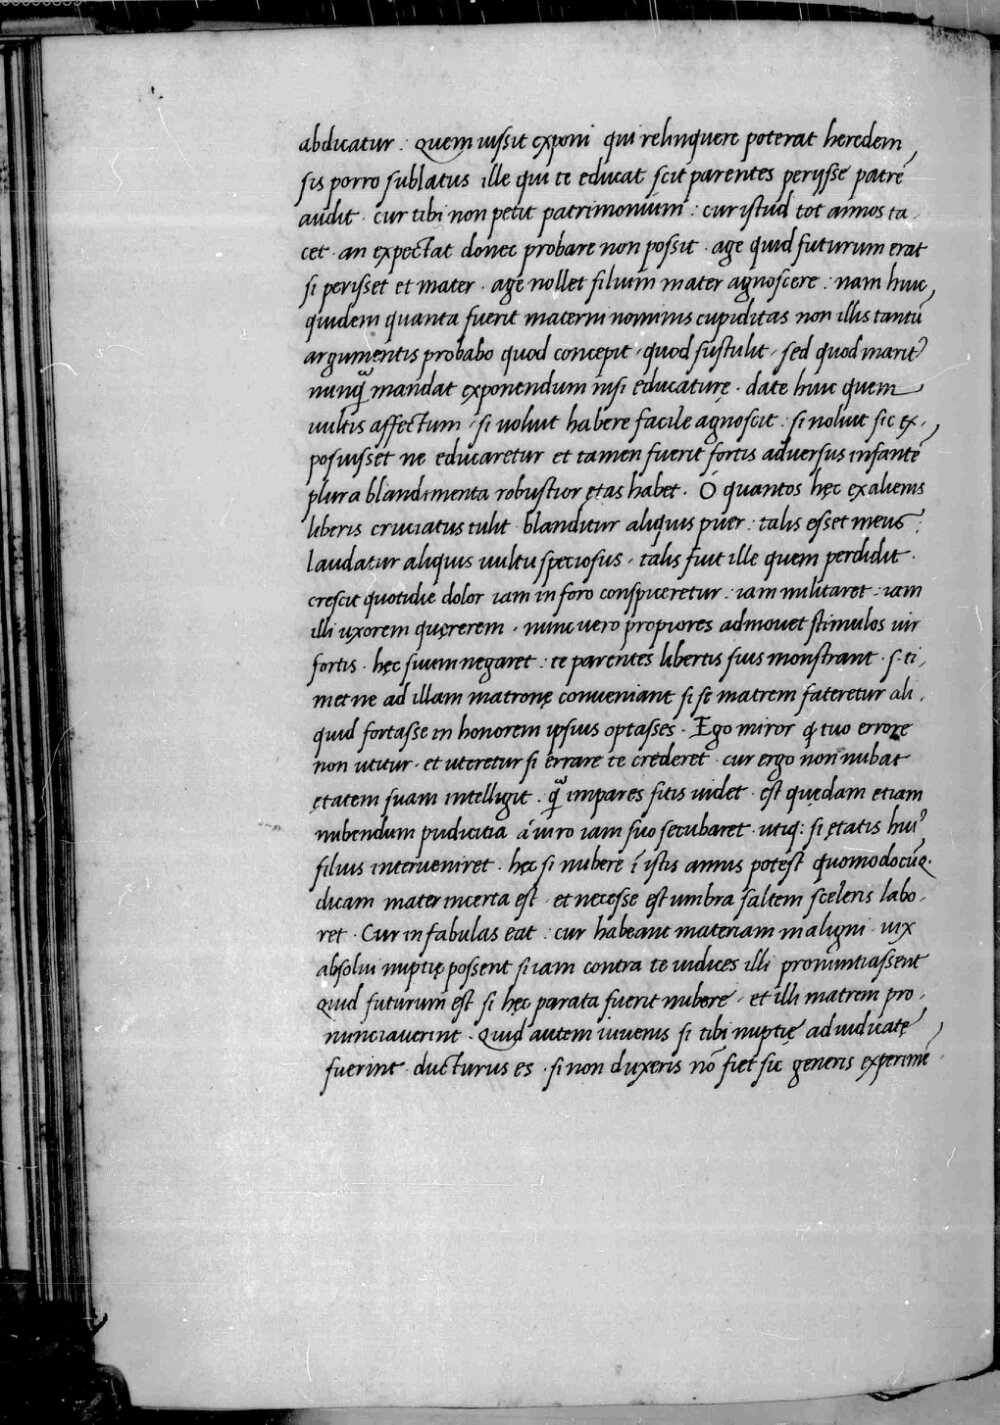 abdicatur : Quem iussit exponi qui relinquere poterat heredem,
sis porro sublatus ille qui te educat scit parentes perijsse patrē
audit · cur tibi non petit patrimonium : cur istud tot annos ta,
cet · an expectat donec probare non possit · age quid futurum erat
si perisset et mater · age nollet filium mater agnoscere : nam huic,
quidem quanta fuerit materni nominis cupiditas non illis tantū
argumentis probabo quod concepit · quod sustulit · sed quod marit᾽
nunq̄ mandat exponendum nisi educaturę · date huic quem
uultis affectum · si uoluit habere facile agnoscit : si noluit sic ex,
posuisset ne educaretur et tamen fuerit fortis adversus infantē
plura blandimenta robustior ętas habet · O quantos hęc ex alienis
liberis cruciatus tulit · blanditur aliquis puer : talis esset meus :
laudatur aliquis uultu speciosus · talis fuit ille quem perdidit ·
crescit quotidie dolor iam in foro conspiceretur : iam militaret : iam
illi uxorem quęrerem · nunc uero propiores admovet stimulos uir
fortis · hęc suum negaret : te parentes libertis suis monstrant · s· ti,
met ne ad illam matronę conveniant si se matrem fateretur ali,
quid fortasse in honorem ipsius optasses · Ego miror q̄ tuo errore
non utitur · et uteretur si errare te crederet · cur ergo non nubat
ętatem suam intelligit · q̄ impares sitis uidet · est quędam etiam
nubendum pudicitia á uiro iam suo secubaret · utiq: si ętatis hui᾽
filius interveniret · hęc si nubere ī istis annis potest quomodocūq·
dicam mater incerta est · et necesse est umbra saltem sceleris labo,
ret · Cur in fabulas eat : cur habeant materiam maligni uix
absolui nuptię possent si iam contra te iudices illi pronuntiassent
Quid futurum est si hęc parata fuerit nubere · et illi matrem pro,
nunciaverint · Quid autem iuvenis si tibi nuptię adiudicatę,
fuerint · ducturus es · si non duxeris nō fiet sic generis experimē,